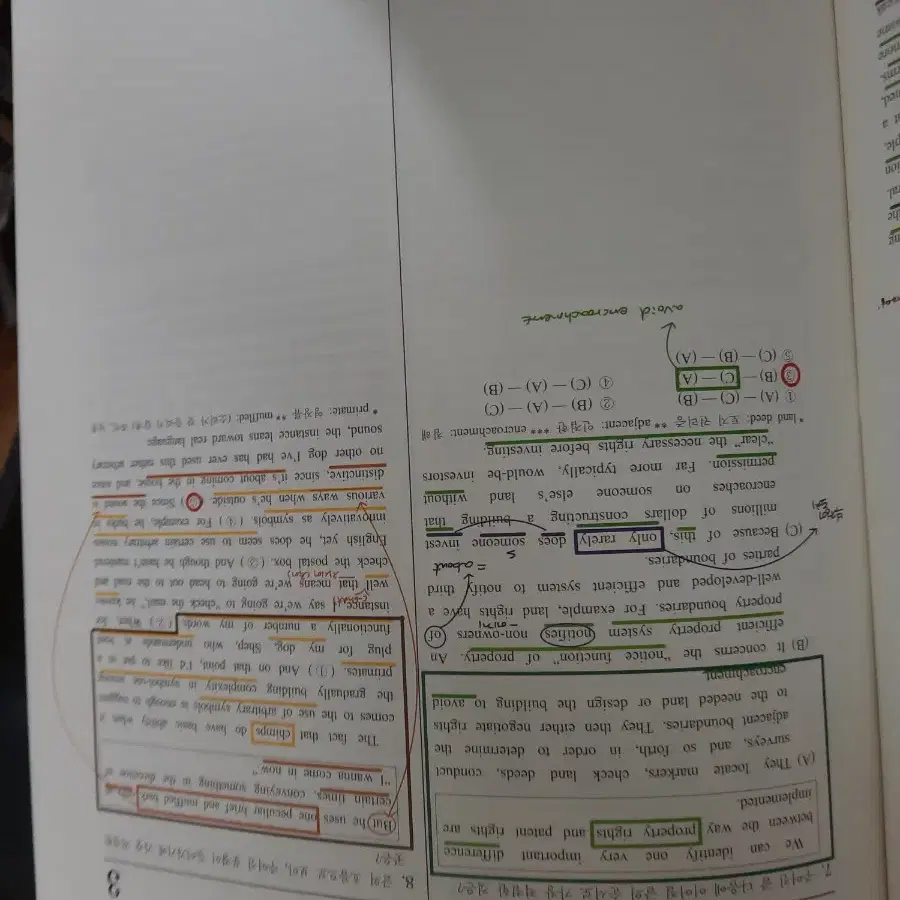 3
7. 주어진 글 다음에 이어질 글의 순서로 가장 적절한 것은?
We can identify one very important difference
between the way property rights and patent rights are
implemented.
(A) They locate markers, check land deeds, conduct
surveys, and so forth, in order to determine the
adjacent boundaries. They then either negotiate rights
to the needed land or design the building to avoid
encroachment.
(B) It concerns the "notice function" of property. An
efficient property system notifies non-owners of
property boundaries. For example, land rights have a
well-developed and efficient system to notify third
parties of boundaries.
= about
(C) Because of this, only rarely does someone invest
S
millions of dollars constructing a building that
encroaches on someone else's land without
permission. Far more typically, would-be investors
"clear" the necessary rights before investing.
* land deed: 토지 권리증 ** adjacent: 인접한 *** encroachment: 침해
① (A) — (C) — (B)
② (B) — (A) — (C)
③ (B) — (C) — (A)
④ (C) — (A) — (B)
⑤ (C) — (B) — (A)
avoid encroachment
8. 글의 흐름으로 보아, 주어진 문장이 들어가기에 가장 적절한
곳은?
But he uses one peculiar brief and muffled too, at
certain times, conveying something in the direction of
"I wanna come in now."
The fact that chimps do have basic ability when it
comes to the use of arbitrary symbols is enough to suggest
the gradually building complexity in symbol-use among
primates. ( ① ) And on that point, I'd like to put in a
plug for my dog, Shep, who understands at least
functionally a number of my words. ( ② ) When, for
instance, I say we're going to "check the mail," he knows
well that means we're going to head out to the road and
check the postal box. ( ③ ) And though he hasn't mastered
English yet, he does seem to use certain arbitrary tones
innovatively as symbols. ( ④ ) For example, he barks in
various ways when he's outside. ( ⑤ ) Since the sound is
distinctive, since it's about coming in the house, and since
no other dog I've had has ever used this rather arbitrary
sound, the instance leans toward real language.
* primate: 영장류 ** muffled: